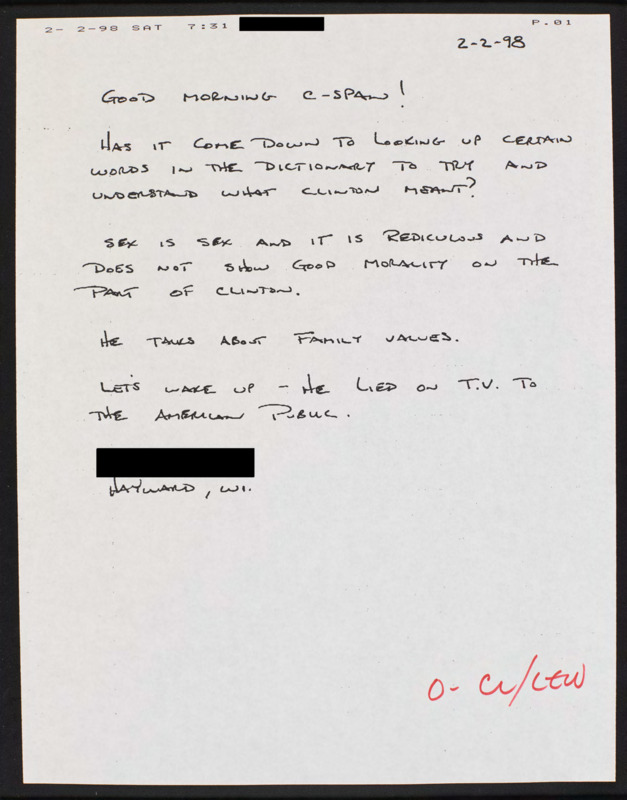 2- 2-98 SAT 7:31 P.01
2-2-98
GOOD MORNING C-SPAN!
HAS IT COME DOWN TO LOOKING UP CERTAIN
WORDS IN THE DICTIONARY TO TRY AND
UNDERSTAND WHAT CLINTON MEANT?
SEX IS SEX AND IT IS REDICULOUS AND
DOES NOT SHOW GOOD MORALITY ON THE
PART OF CLINTON.
HE TALKS ABOUT FAMILY VALUES.
LET'S WAKE UP - HE LIED ON T.V. TO
THE AMERICAN PUBLIC.
HAYWARD, WI.
O- CL/LEW